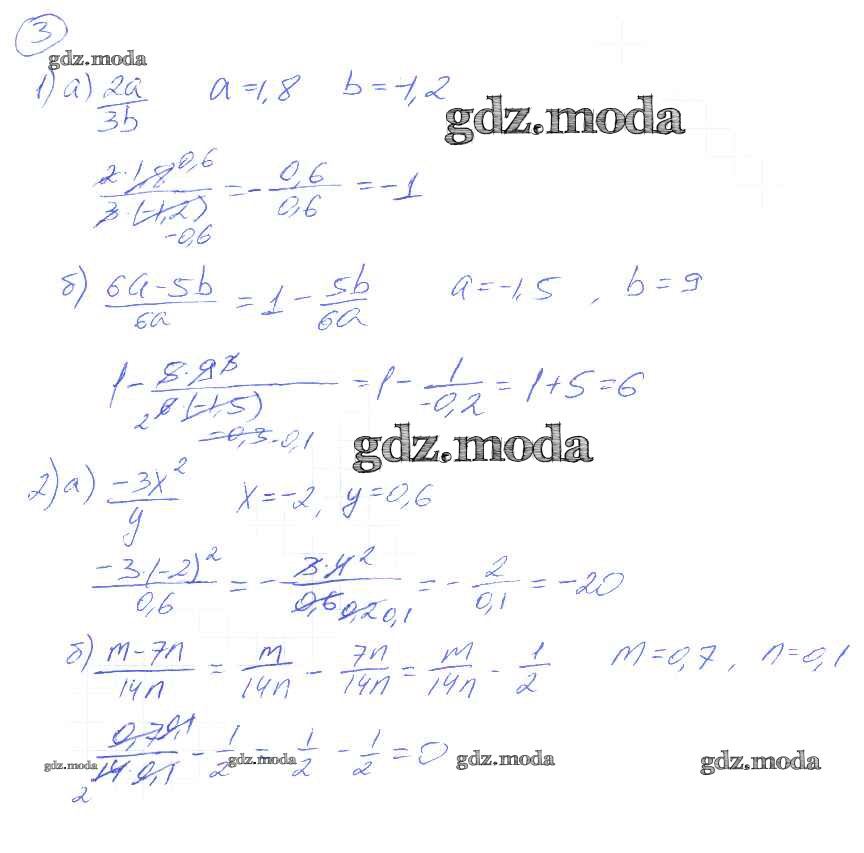 3
gdz.moda
1) а) 2a/3b a = 1,8 b = -1,2
gdz.moda
2·1,8 0,6 / 3·(-1,2) -0,6 = - 0,6/0,6 = -1
б) 6a-5b/6a = 1 - 5b/6a a = -1,5 , b = 9
1 - 5·9 3 / 2 6 (-1,5) -0,3 -0,1 = 1 - 1/-0,2 = 1+5 = 6
gdz.moda
2) а) -3x²/y x = -2, y = 0,6
-3·(-2)²/0,6 = - 3·4 2 / 0,6 0,2 0,1 = - 2/0,1 = -20
б) m-7n/14n = m/14n - 7n/14n = m/14n - 1/2 m = 0,7 , n = 0,1
0,7 0,1 / 2 14·0,1 - 1/2 = 1/2 - 1/2 = 0
gdz.moda gdz.moda gdz.moda gdz.moda